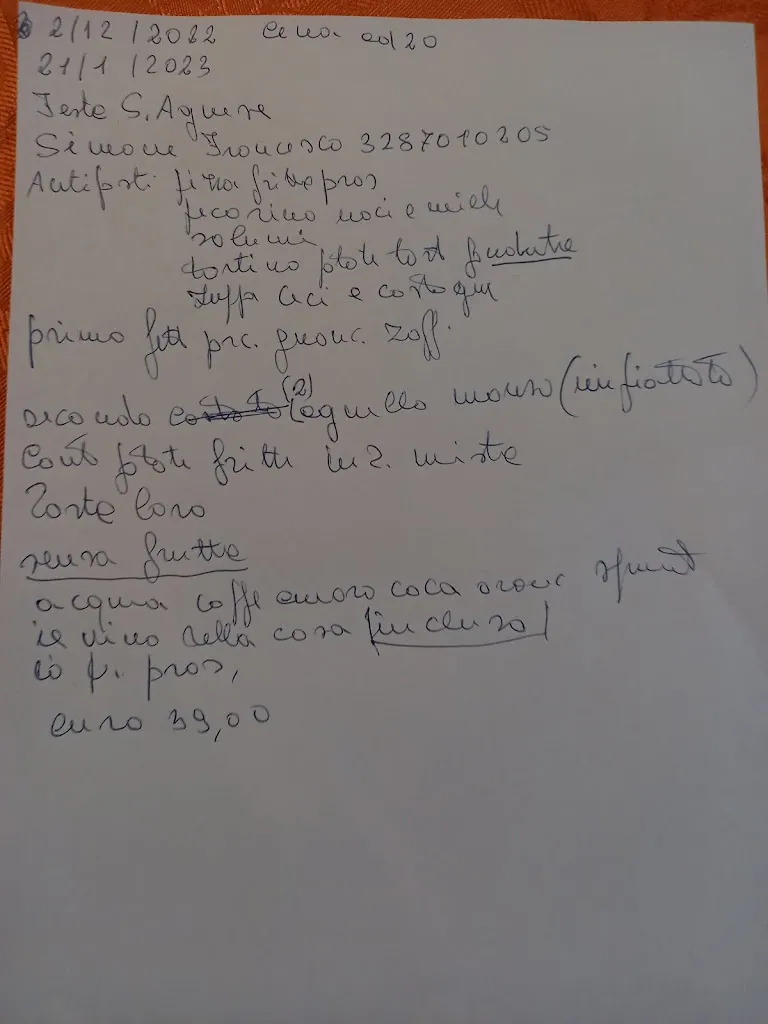 2/12/2022 cena ad 20
21/1/2023
Feste S. Agnese
Simone Francesco 3287010205
Antipast. pizza fritta pros
pecorino noci e miele
salumi
tortino patate tart
zuppa ceci e castagne
primo fett prc. guanc. zaff.
secondo (2) agnello manzo (rinfiattato)
Cont patate fritte in2. mista
Torta loro
senza frutta
acqua caffe amaro coca aranc sprint
il vino della casa incluso
p. pros,
euro 39,00